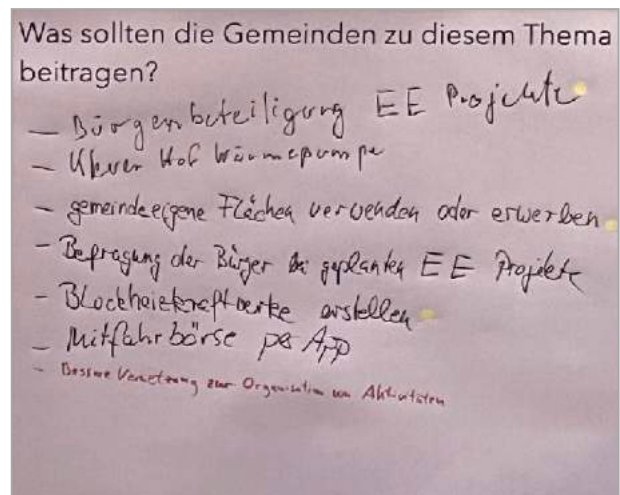 Was sollten die Gemeinden zu diesem Thema
beitragen?
– Bürgerbeteiligung EE Projekte
– Hof Wärmepumpe
– gemeindeeigene Flächen verwenden oder erwerben
– Befragung der Bürger bei geplanten EE Projekte
– Blockheizkraftwerke erstellen
– Mitfahrbörse per App
– Bessere Vernetzung zur Organisation von Aktivitäten